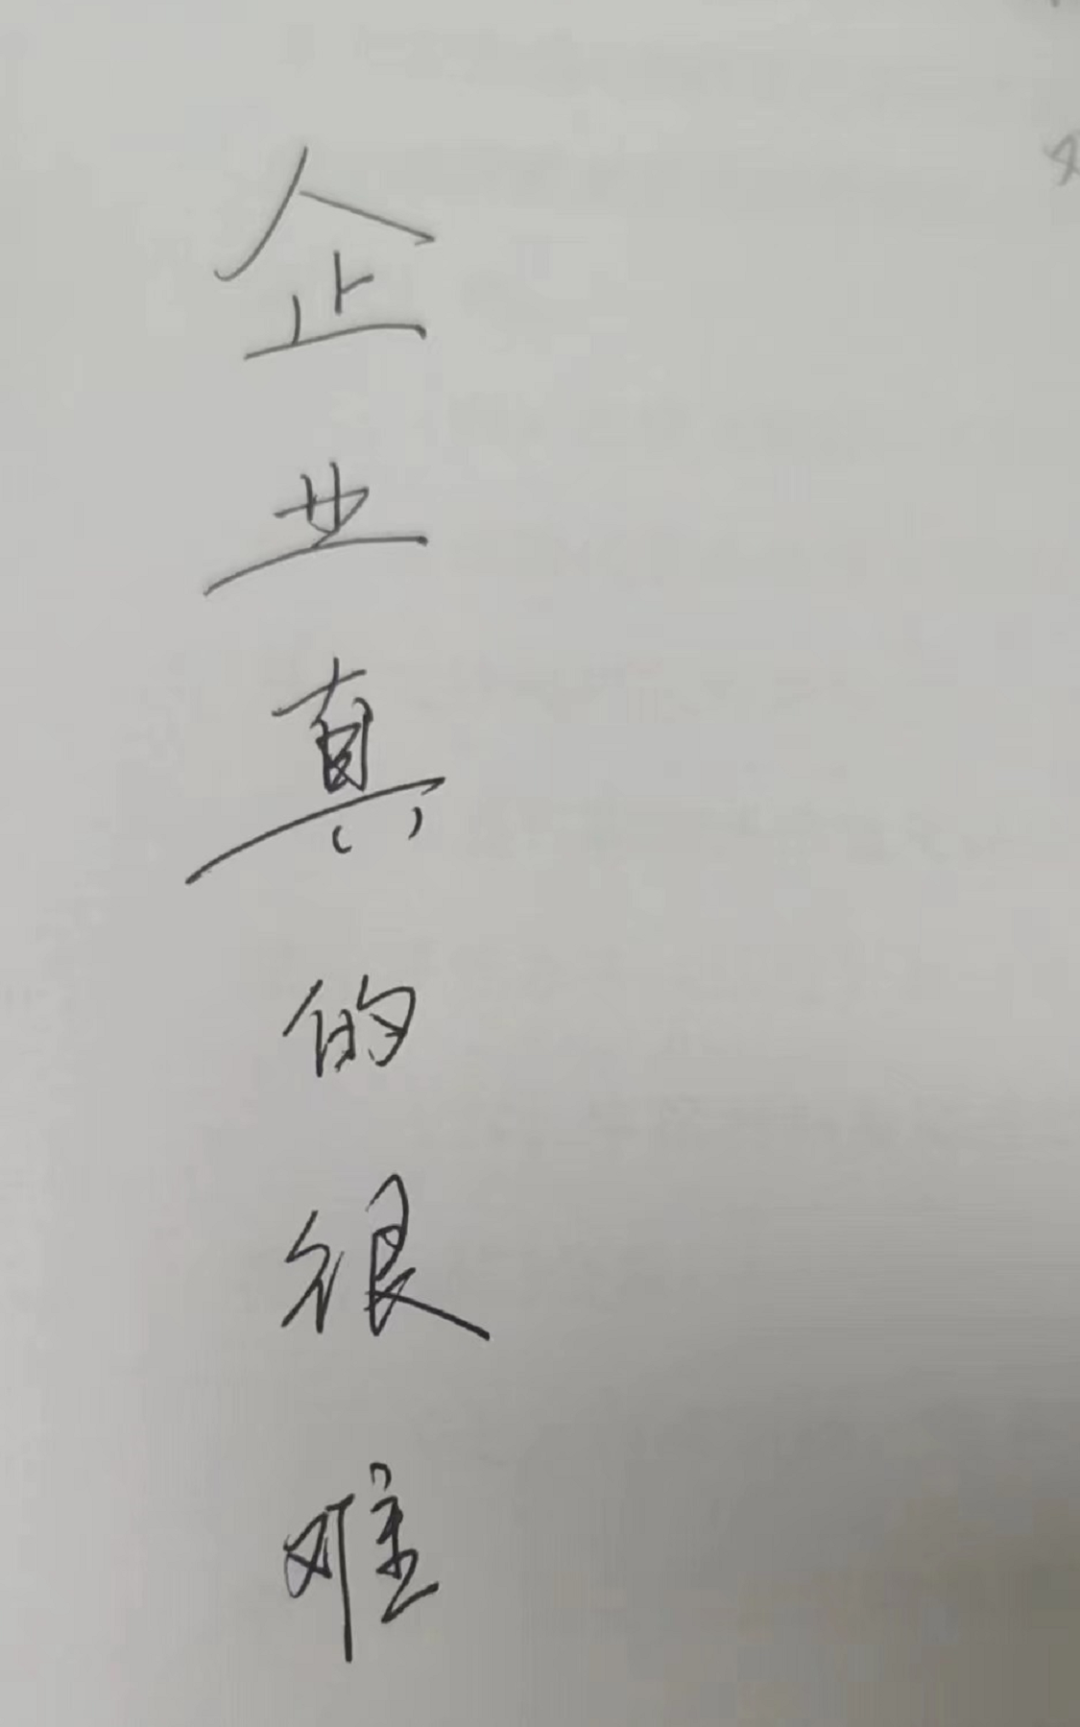 企业真的很难